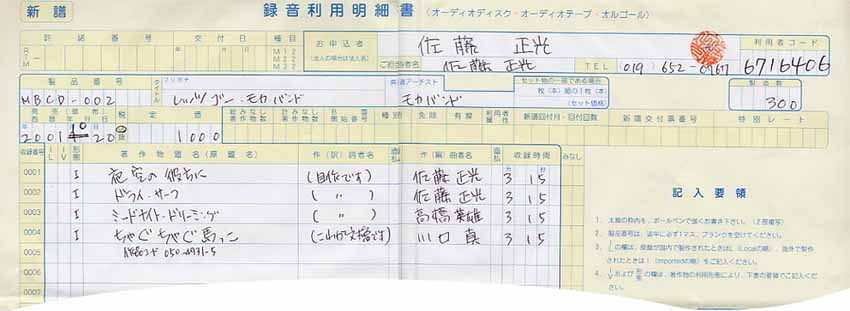 新譜
録音利用明細書 (オーディオディスク・オーディオテープ・オルゴール)
許諾番号 交付日 種目
R- M- 年 月 日 M12 M22 M32
お申込者 (法人の場合は法人名) 佐藤 正光
ご担当者名 佐藤 正光 TEL (019) 652-0967
利用者コード 6716406
製品番号 MBCD-002
タイトル フリガナ レッツゴー・モカバンド
共通アーチスト モカバンド
セット物の一部である場合 枚(本)組の1枚(本) (セット価格)
製造数 300
発売(頒布)年月日 税 定価
2001 10 20 抜 1000
種別 免除 有線 利用者属性 新譜回付月・回付回数 新譜交付票番号 特別レート
収録番号 IL IV 形態 著作物題名(原題名) 作(訳)詞者名 追払 作(編)曲者名 追払 収録時間 みなし
0001 I 夜空の彼方に (自作です) 佐藤 正光 3分15秒
0002 I ドライ・サーフ ( 〃 ) 佐藤 正光 3 15
0003 I ミードナイト・ドリーミング ( 〃 ) 高橋 英雄 3 15
0004 I ちゃぐちゃぐ馬っこ 川口 真 3 15
0005
0006
0007
記入要領
1. 太線の枠内を、ボールペンで強くお書き下さい。(2部複写)
2. 製品番号は、途中に必ず1マス、ブランクを空けてください。
3. の欄は、原盤が国内で製作されたときはL (Localの略)、海外で製作されたときはI (Importedの略) をご記入ください。
4. IVおよび形態の欄は、著作物の利用形態により、下表の要領でご記入くださ